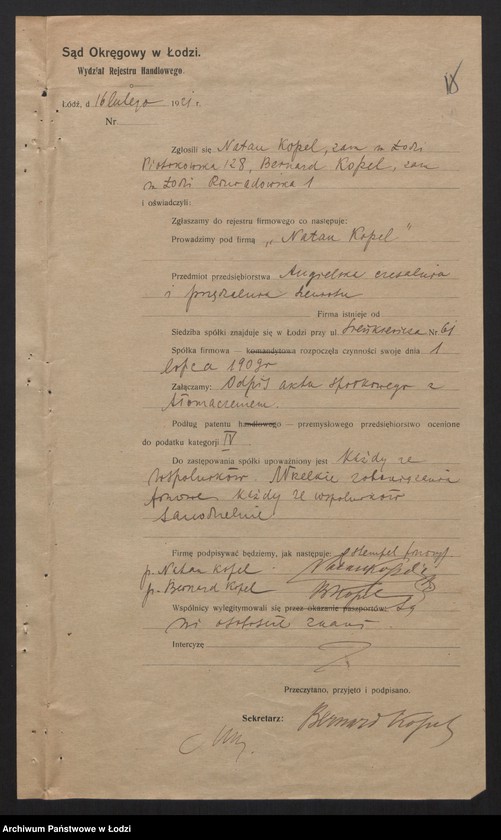 Sąd Okręgowy w Łodzi.
Wydział Rejestru Handlowego.
Łódź, d. 16 lutego 1921 r.
Nr.
Zgłosili się Natan Kopel, zam. w Łodzi
Piotrkowska 128, Bernard Kopel, zam
w Łodzi 1
i oświadczyli:
Zgłaszamy do rejestru firmowego co następuje:
Prowadzimy pod firmą „Natan Kopel"
Przedmiot przedsiębiorstwa Angielska czesalnia
i przędzalnia
Firma istnieje od
Siedziba spółki znajduje się w Łodzi przy ul. Sienkiewicza Nr. 61
Spółka firmowa — komandytowa rozpoczęła czynności swoje dnia 1
lipca 1909 r
Załączamy: Odpis aktu spółkowego z
tłomaczeniem.
Podług patentu handlowego — przemysłowego przedsiębiorstwo ocenione
do podatku kategorji IV
Do zastępowania spółki upoważniony jest każdy ze
wspólników. Wszelkie zobowiązania
firmowe każdy ze wspólników
samodzielnie.
Firmę podpisywać będziemy, jak następuje: stempel firmowy
p. Natan Kopel
p. Bernard Kopel
Wspólnicy wylegitymowali się przez okazanie paszportów: są
mi osobiście znani.
Intercyzę
Przeczytano, przyjęto i podpisano.
Sekretarz: Bernard Kopel
Archiwum Państwowe w Łodzi